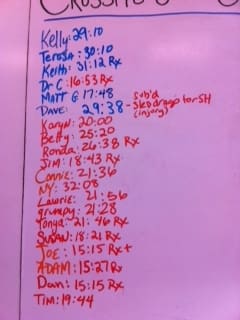 Kelly: 29:10
Teresa: 30:10
Keith: 31:12 Rx
Dr C: 16:53 Rx
MATT G: 17:48
DAVE: 29:38 - Sub'd Sled drags for SH (injury)
Karyn: 20:00
Betty: 25:20
Ronda: 26:38 Rx
Jim: 18:43 Rx
Connie: 21:36
NY: 32:08
Laurie: 21:56
grumpy: 21:28
Tonya: 21:46 Rx
SUSAN: 18:21 Rx
JOE: 15:15 Rx+
ADAM: 15:27 Rx
Dan: 15:15 Rx
TIM: 19:44